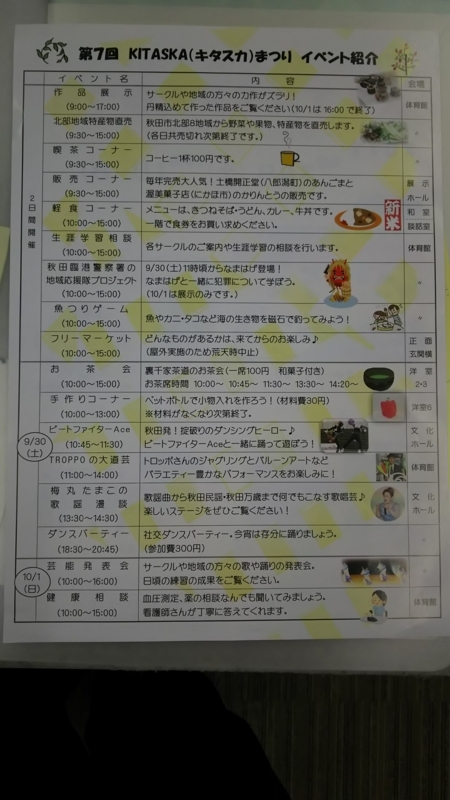 第7回 KITASKA(キタスカ)まつり イベント紹介
イベント名 内容 会場
2日間開催
作品展示
(9:00〜17:00)
サークルや地域の方々の力作がズラリ！
丹精込めて作った作品をご覧ください(10/1は16:00で終了)
体育館
北部地域特産物直売
(9:30〜15:00)
秋田市北部8地域から野菜や果物、特産物を直売します。
(各日共売切れ次第終了です。)
〃
喫茶コーナー
(9:30〜15:00)
コーヒー1杯100円です。
〃
販売コーナー
(10:00〜15:00)
毎年完売大人気！土橋開正堂(八郎潟町)のあんごまと
渥美菓子店(にかほ市)のかりんとうの販売です。
展示
ホール
軽食コーナー
(10:00〜15:00)
メニューは、きつねそば・うどん、カレー、牛丼です。
一階で食券をお買い求めください。
新米
和室
談話室
生涯学習相談
(10:00〜15:00)
各サークルのご案内や生涯学習の相談を行います。
体育館
秋田臨港警察署の
地域応援隊プロジェクト
(10:00〜15:00)
9/30(土)11時頃からなまはげ登場！
なまはげと一緒に犯罪について学ぼう。
(10/1は展示のみです。)
〃
魚つりゲーム
(10:00〜15:00)
魚やカニ・タコなど海の生き物を磁石で釣ってみよう！
〃
フリーマーケット
(10:00〜15:00)
どんなものがあるかは、来てからのお楽しみ♪
(屋外実施のため荒天時中止)
正面
玄関横
9/30
(土)
お茶会
(10:00〜15:00)
裏千家茶道のお茶会(一席100円 和菓子付き)
お茶席時間 10:00〜 10:45〜 11:30〜 13:30〜 14:20〜
洋室
2・3
手作りコーナー
(10:00〜13:00)
ペットボトルで小物入れを作ろう！(材料費30円)
※材料がなくなり次第終了。
洋室6
ビートファイターAce
(10:45〜11:30)
秋田発！掟破りのダンシングヒーロー♪
ビートファイターAceと一緒に踊って遊ぼう！
文化
ホール
TROPPOの大道芸
(11:00〜14:00)
トロッポさんのジャグリングとバルーンアートなど
バラエティー豊かなパフォーマンスをお楽しみに！
体育館
梅丸たまこの
歌謡漫談
(13:30〜14:30)
歌謡曲から秋田民謡・秋田万歳まで何でもこなす歌唱芸♪
楽しいステージをぜひご覧ください！
文化
ホール
ダンスパーティー
(18:30〜20:45)
社交ダンスパーティー。今宵は存分に踊りましょう。
(参加費300円)
〃
10/1
(日)
芸能発表会
(10:00〜16:00)
サークルや地域の方々の歌や踊りの発表会。
日頃の練習の成果をご覧ください。
〃
健康相談
(10:00〜15:00)
血圧測定、薬の相談なんでも聞いてみましょう。
看護師さんが丁寧に答えてくれます。
体育館